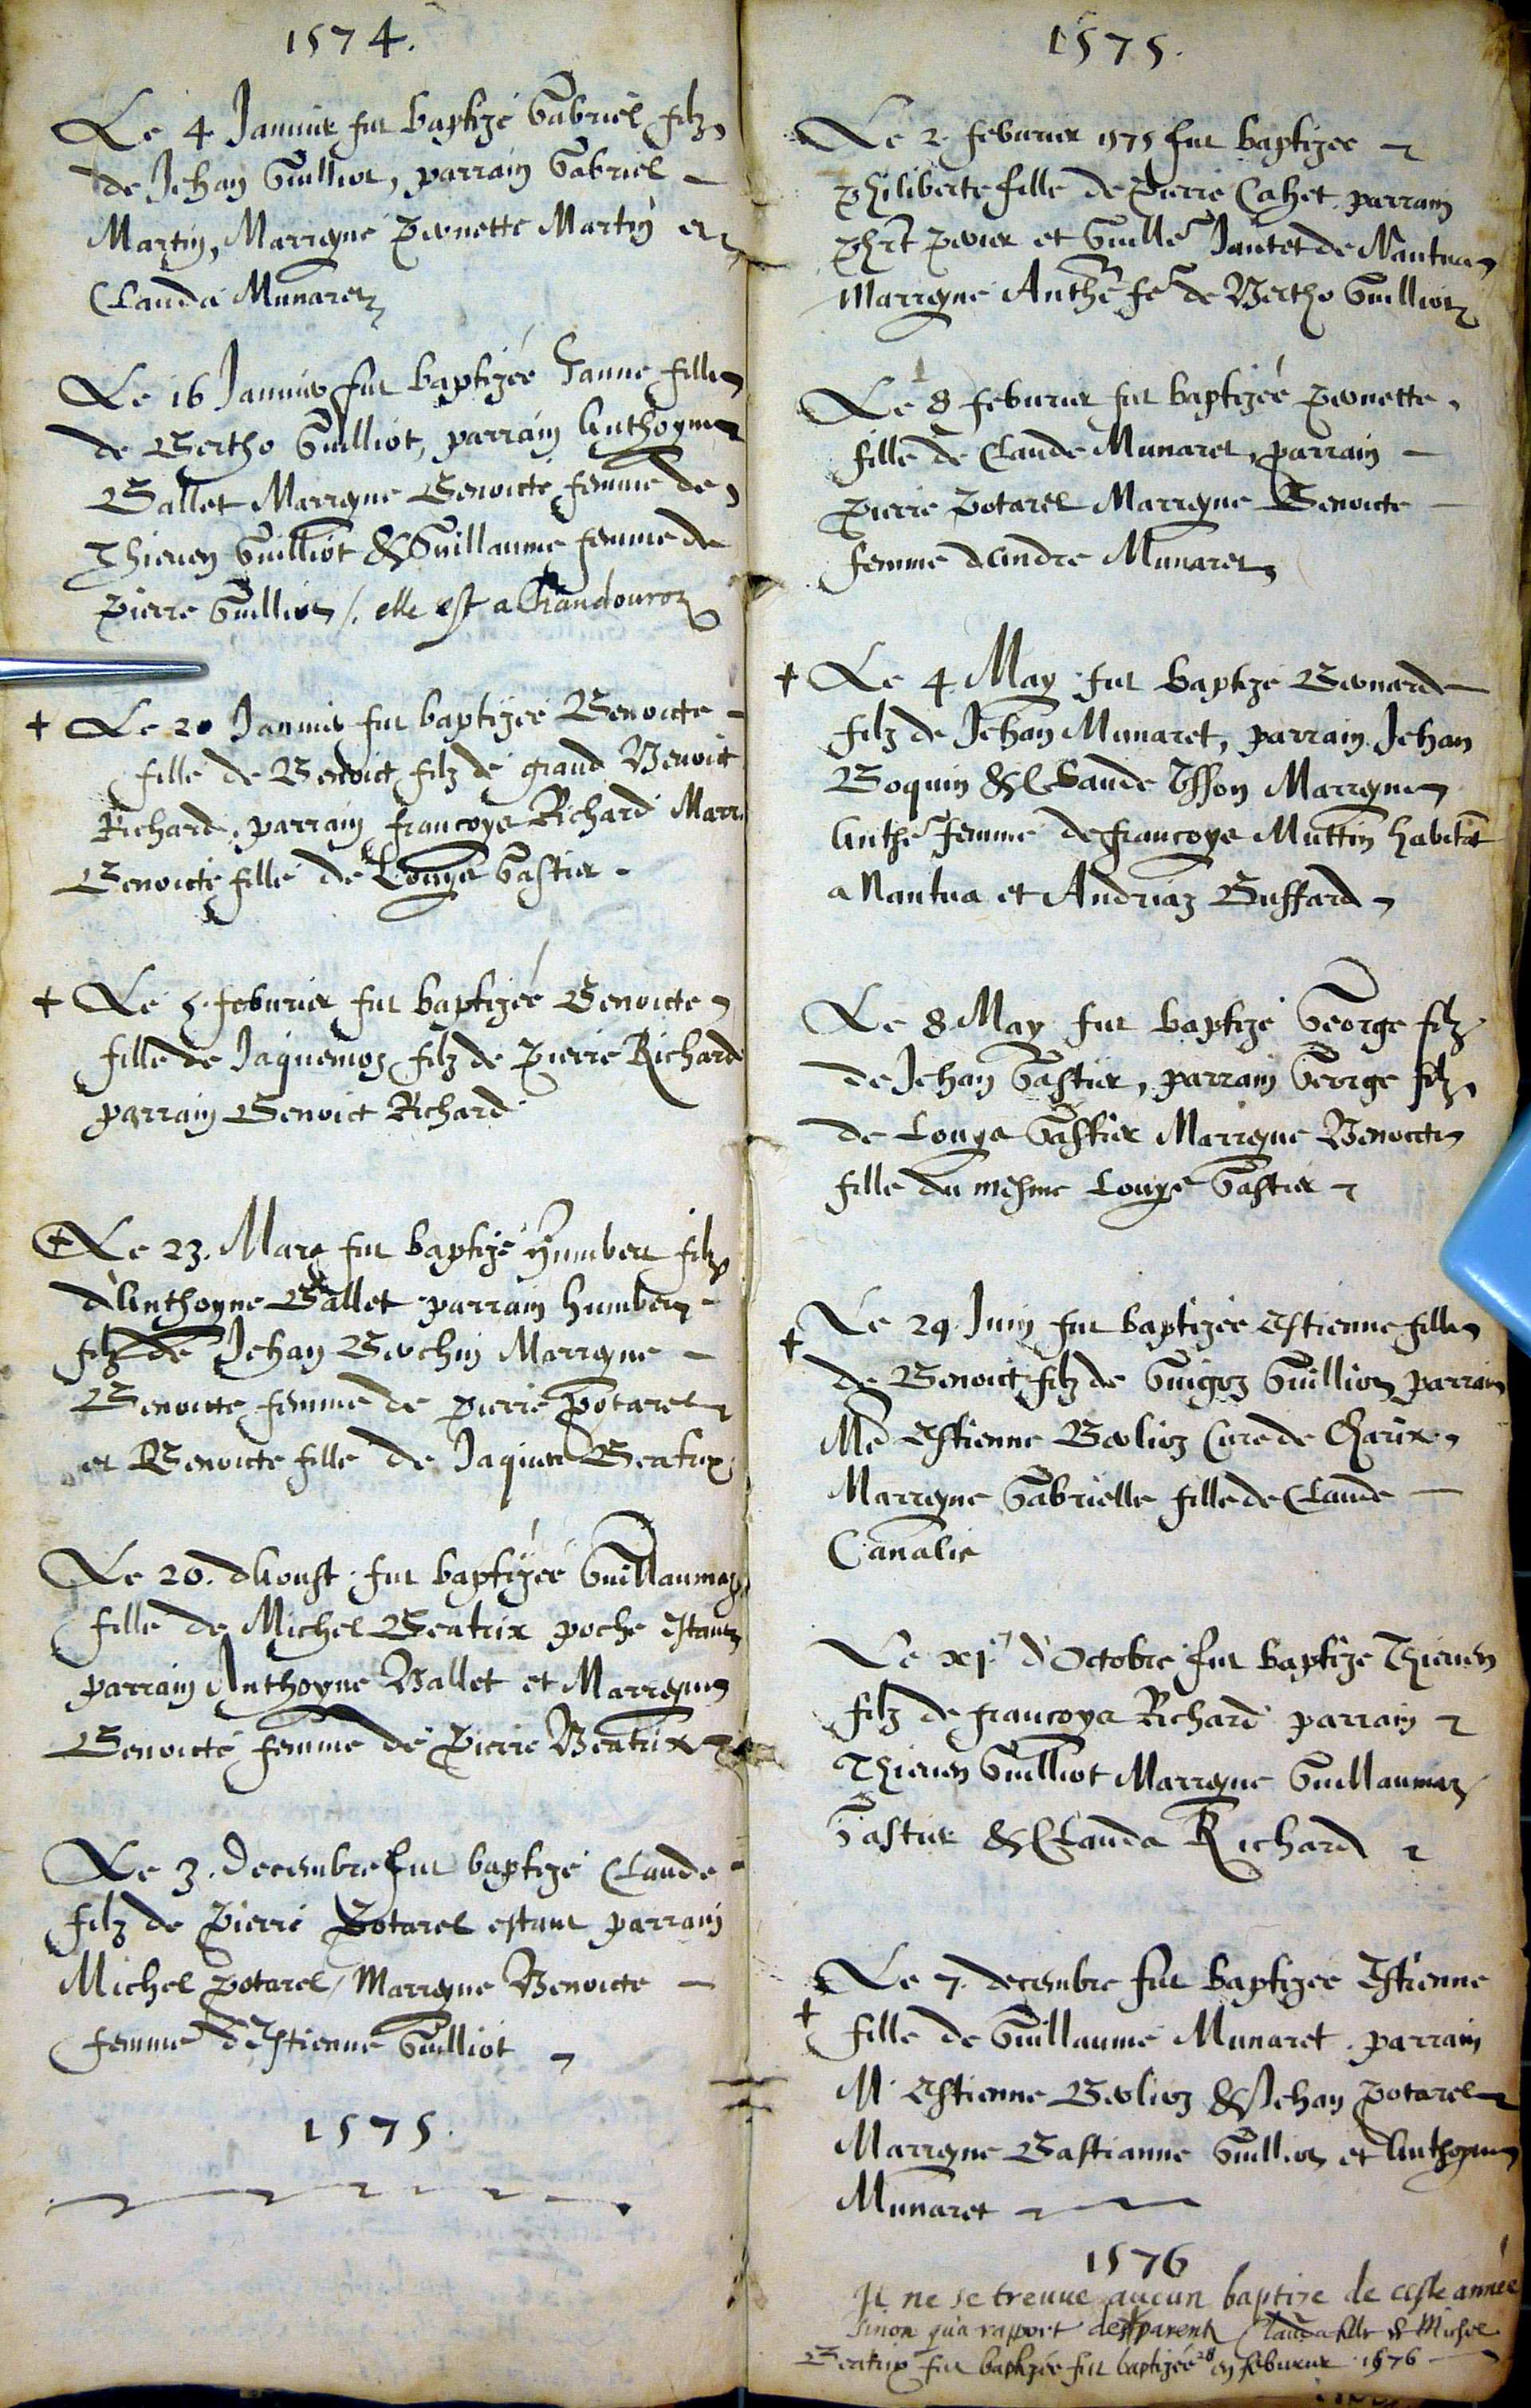 1574.
Le 4 Januier fut baptizé Gabriel filz
de Jehan Guilliot, parrain Gabriel
Martin, Marreyne Pernette Martin et
Clauda Munaret
Le 16 Januier fut baptizée Janne fille
de Bertho Guilliot, parrain Anthoyne
Ballet Marreyne Benoicte femme de
Thieuen Guilliot & Guillaume femme de
Pierre Guilliot /. elle est a Chandouroz
+ Le 20 Januier fut baptizée Benoicte
fille de Benoict filz de grand Benoict
Richard, parrain francoys Richard Marr.
Benoicte fille de Louys Gastier
+ Le 5. feburier fut baptizée Benoicte
fille de Jaquemoz filz de Pierre Richard
parrain Benoict Richard
+ Le 23. Mars fut baptizé Humbert filz
d'Anthoyne Ballet parrain humbert
filz de Jehan Berchin Marreyne
Benoicte femme de pierre Potarel
et Benoicte fille de Jaques Beatrix
Le 20. d'Aoust fut baptizée Guillaumaz
fille de Michel Beatrix poche estant
parrain Anthoyne Ballet et Marreyne
Benoicte femme de Pierre Beatrix
Le 3. Decembre fut baptizé Claude
filz de Pierre Potarel estant parrain
Michel Potarel / Marreyne Benoicte
femme d'Estienne Guilliot
1575.
1575.
Le 2. feburier 1575 fut baptizee
Philiberte fille de Pierre Cahet parrain
Phrt Perrier et Guille Jantet de Nantua
Marreyne Anthe fe de Bertho Guilliot
Le 8 feburier fut baptizée Pernette
fille de Claude Munaret, parrain
Pierre Potarel Marreyne Benoicte
femme d'Andre Munaret
+ Le 4. May fut baptizé Bernard
filz de Jehan Munaret, parrain Jehan
Boquin & Claude Ysson Marreyne
Anthe femme de francoys Muttin habitat
a Nantua et Andriaz Buffard
Le 8 May fut baptizé George filz
de Jehan Gastier, parrain George filz
de Louys Gastier Marreyne Benoicte
fille du mesme Louys Gastier
+ Le 29. Juin fut baptizée Estienne fille
de Benoict filz de Guigoz Guilliot parrain
Me Estienne Berlioz Cure de Charix
Marreyne Gabrielle fille de Claude
Canalie
Le xj. d'Octobre fut baptizé Thieuen
filz de francoys Richard parrain
Thieuen Guilliot Marreyne Guillaumaz
Gastier & Clauda Richard
+ Le 7. decembre fut baptizée Estienne
fille de Guillaume Munaret parrain
M. Estienne Berlioz & Jehan Potarel
Marreyne Bastianne Guilliot et Anthoyne
Munaret
1576
Il ne se treuue aucun baptize de ceste année
sinon qu'a rapport des parents Clauda fille de Michel
Beatrix fut baptizée fut baptizée 28 en feburier 1576